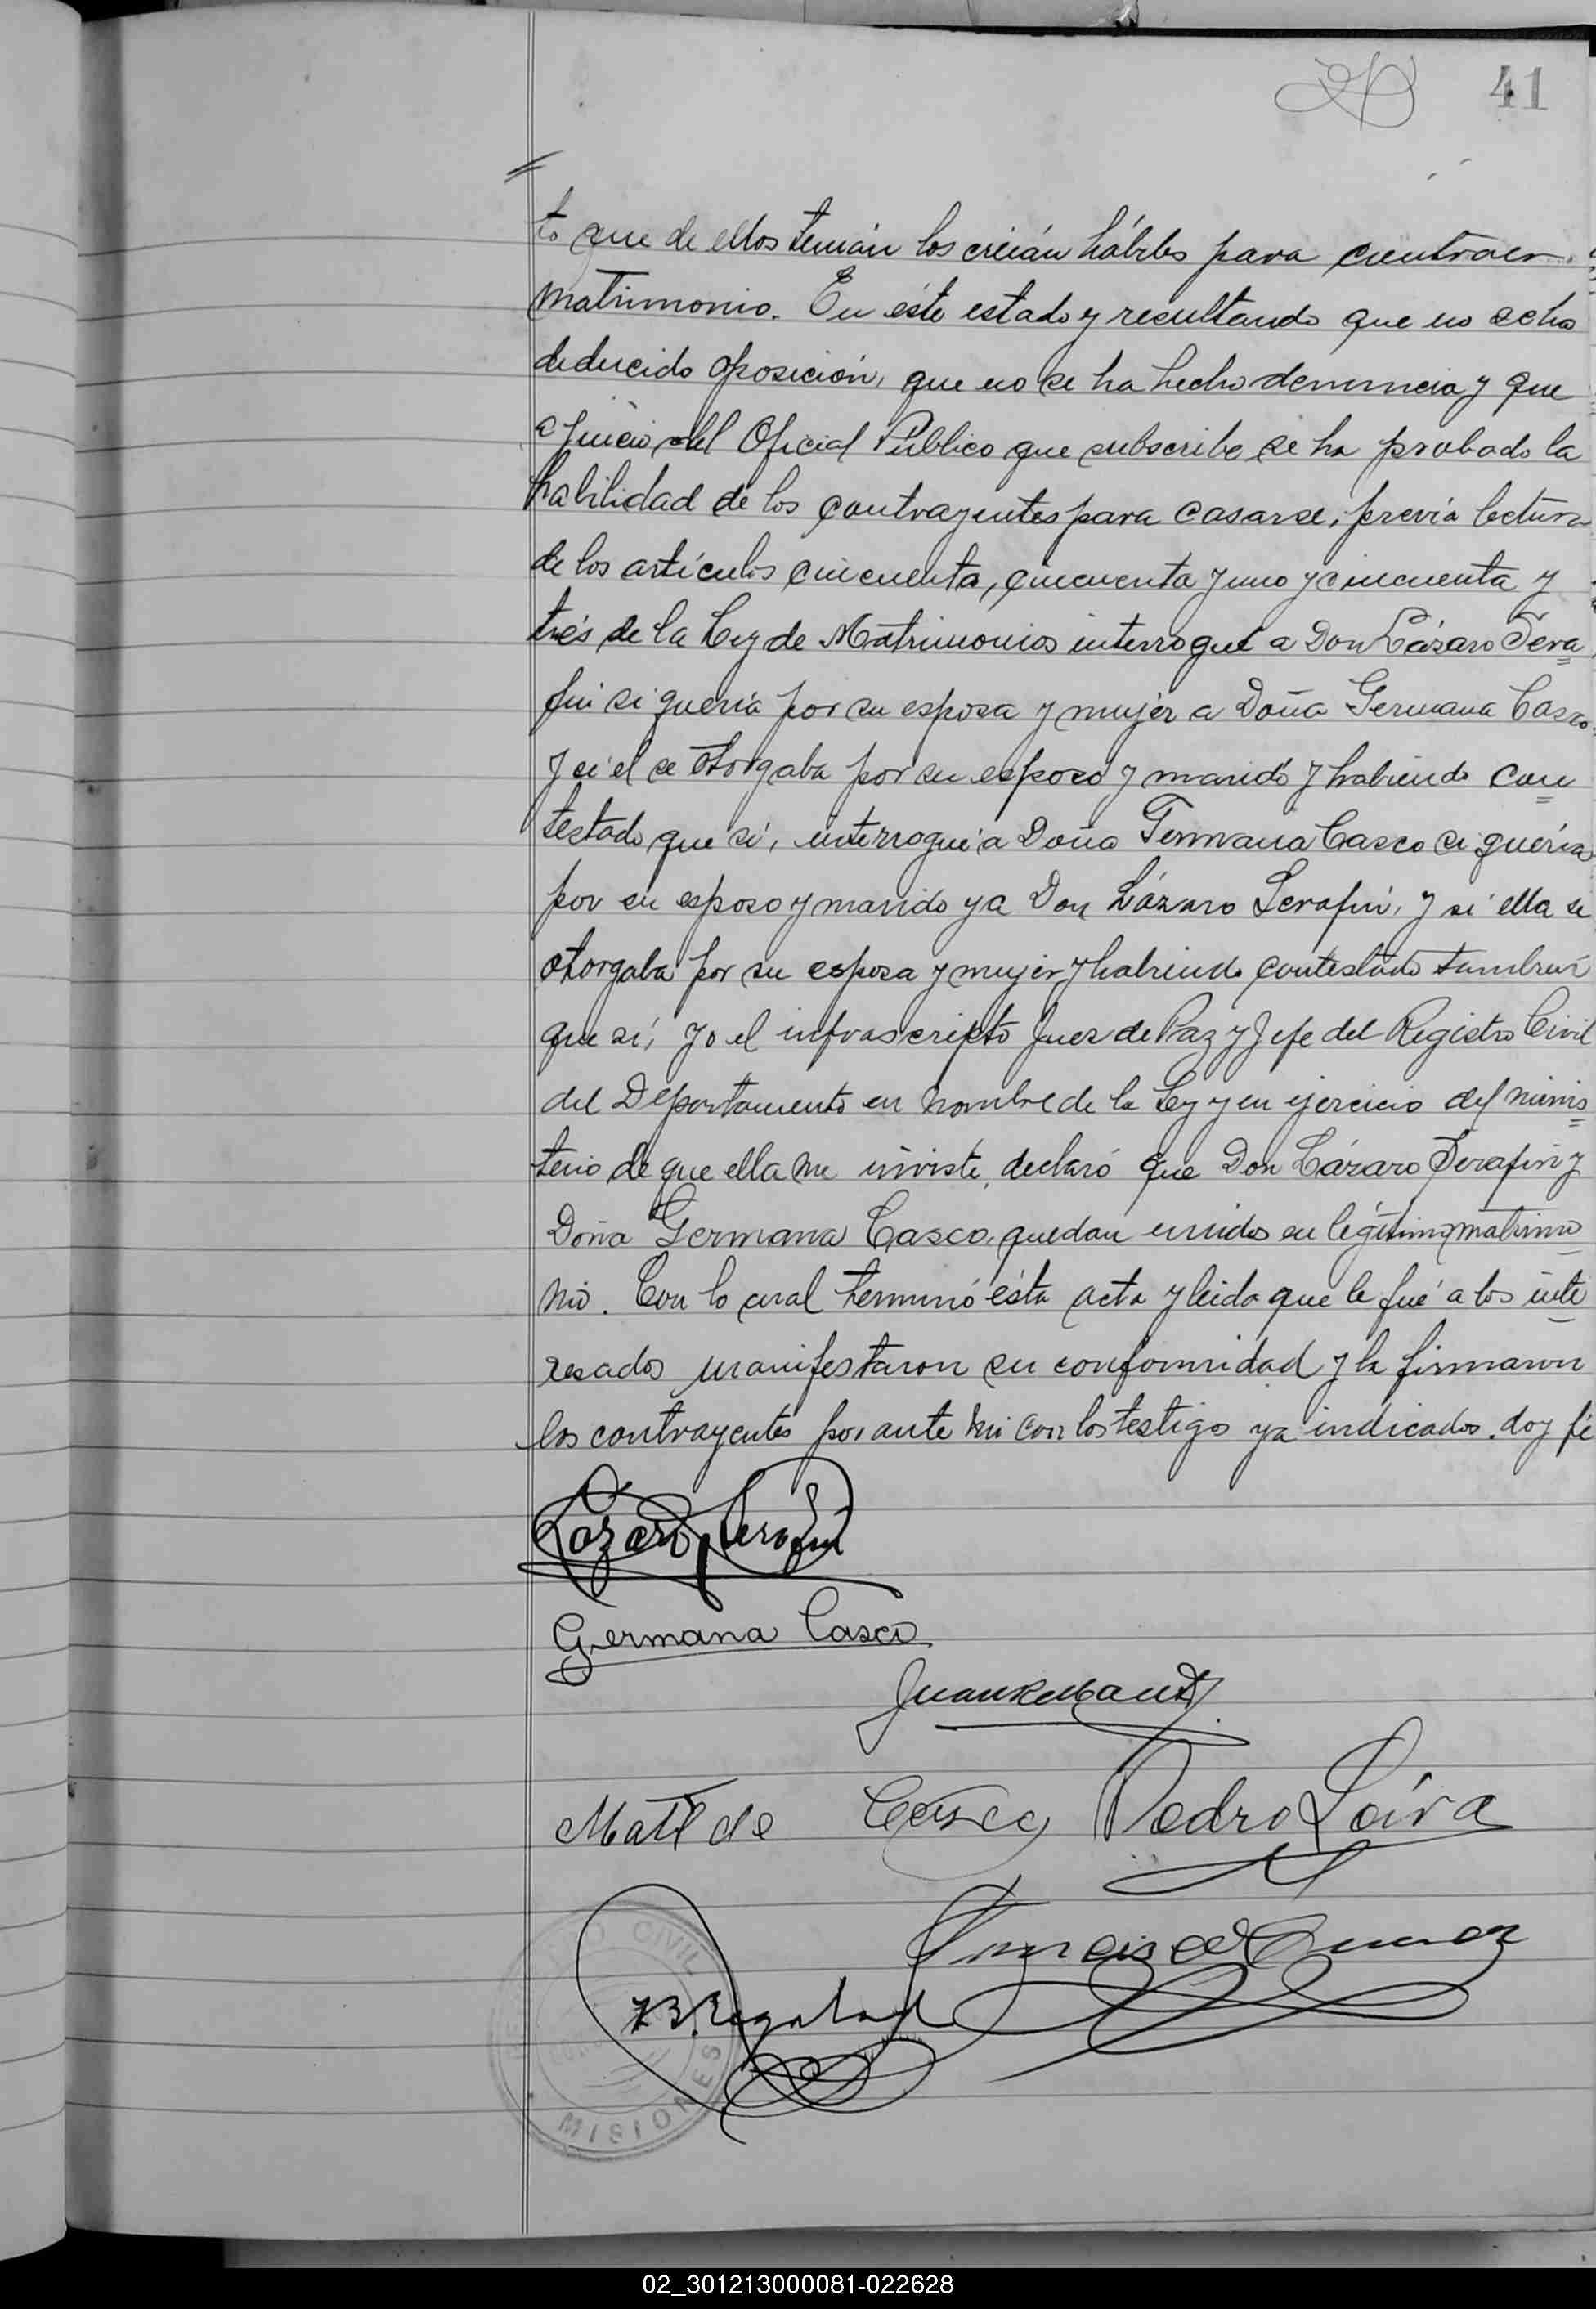 41
to que de ellos tenián los creián hábiles para contraer
matrimonio. En éste estado y resultando que no se ha
deducido oposición, que no se ha hecho denuncia y que
a juicio del Oficial Público que subscribe se ha probado la
habilidad de los contrayentes para casarse, previa lectura
de los artículos cincuenta, cincuenta y uno y cincuenta y
trés de la Ley de Matrimonios interrogué a Don Lázaro Sera
fin si quería por su esposa y mujer a Doña Germana Casco
y si él se otorgaba por su esposo y marido y habiendo con
testado que sí, interrogué a Doña Germana Casco si quería
por su esposo y marido ya Don Lázaro Serafin, y si ella se
otorgaba por su esposa y mujer y habiendo contestado tambien
que sí, yo el infrascripto Juez de Paz y Jefe del Registro Civil
del Departamento en nombre de la Ley y en ejercicio del minis
terio de que ella me inviste, declaró que Don Lázaro Serafin y
Doña Germana Casco, quedan unidos en legítimo matrimo
nio. Con lo cual terminó ésta acta y leida que le fué a los inte
resados manifestaron su conformidad y la firmaron
los contrayentes por ante mi con los testigos ya indicados. doy fé
Lázaro Serafin
Germana Casco
Juan
Matilde Casco Pedro Loiva
Francisco
CIVIL
MISIONES
02_301213000081-022628